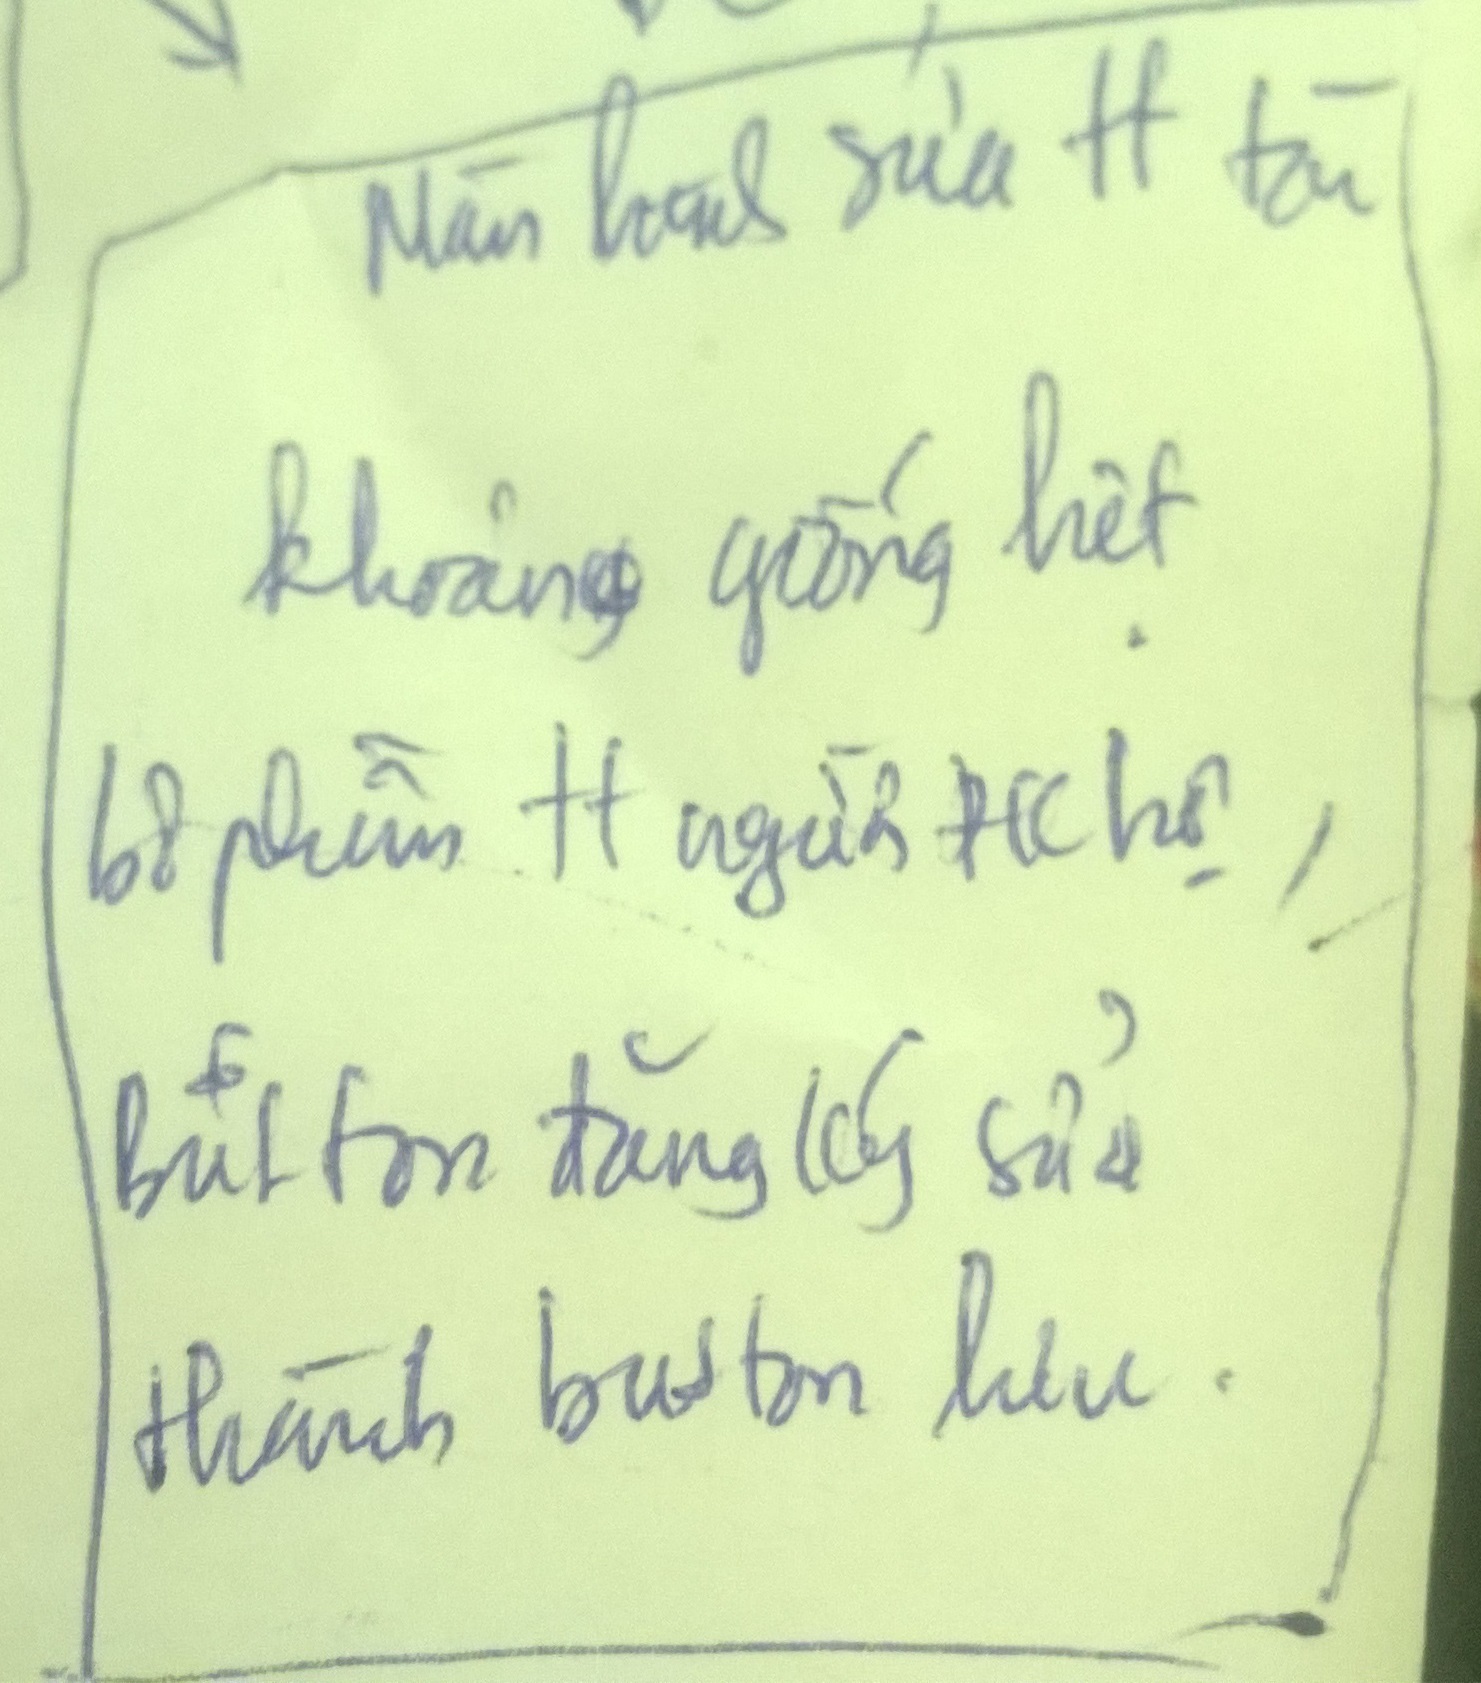 Màn hình sửa tt tài
khoản giống hệt
bỏ phần tt người ĐK hộ,
Button đăng ký sửa
thành button lưu.